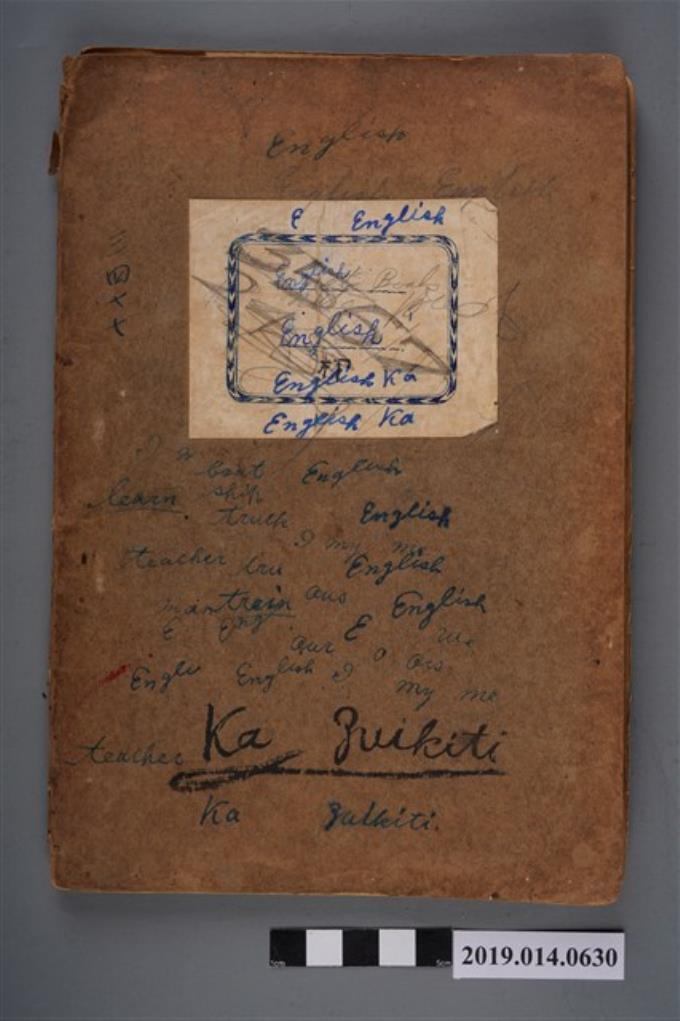 English
English English
三四十七
E English
English Book
English
English Ka
English Ka
boat English
learn ship
truck English
I my me
teacher English
train ous English
E Eng E we
our
Engli English I my me
teacher Ka Zuikiti
Ka Zuikiti.
5cm 5cm
2019.014.0630